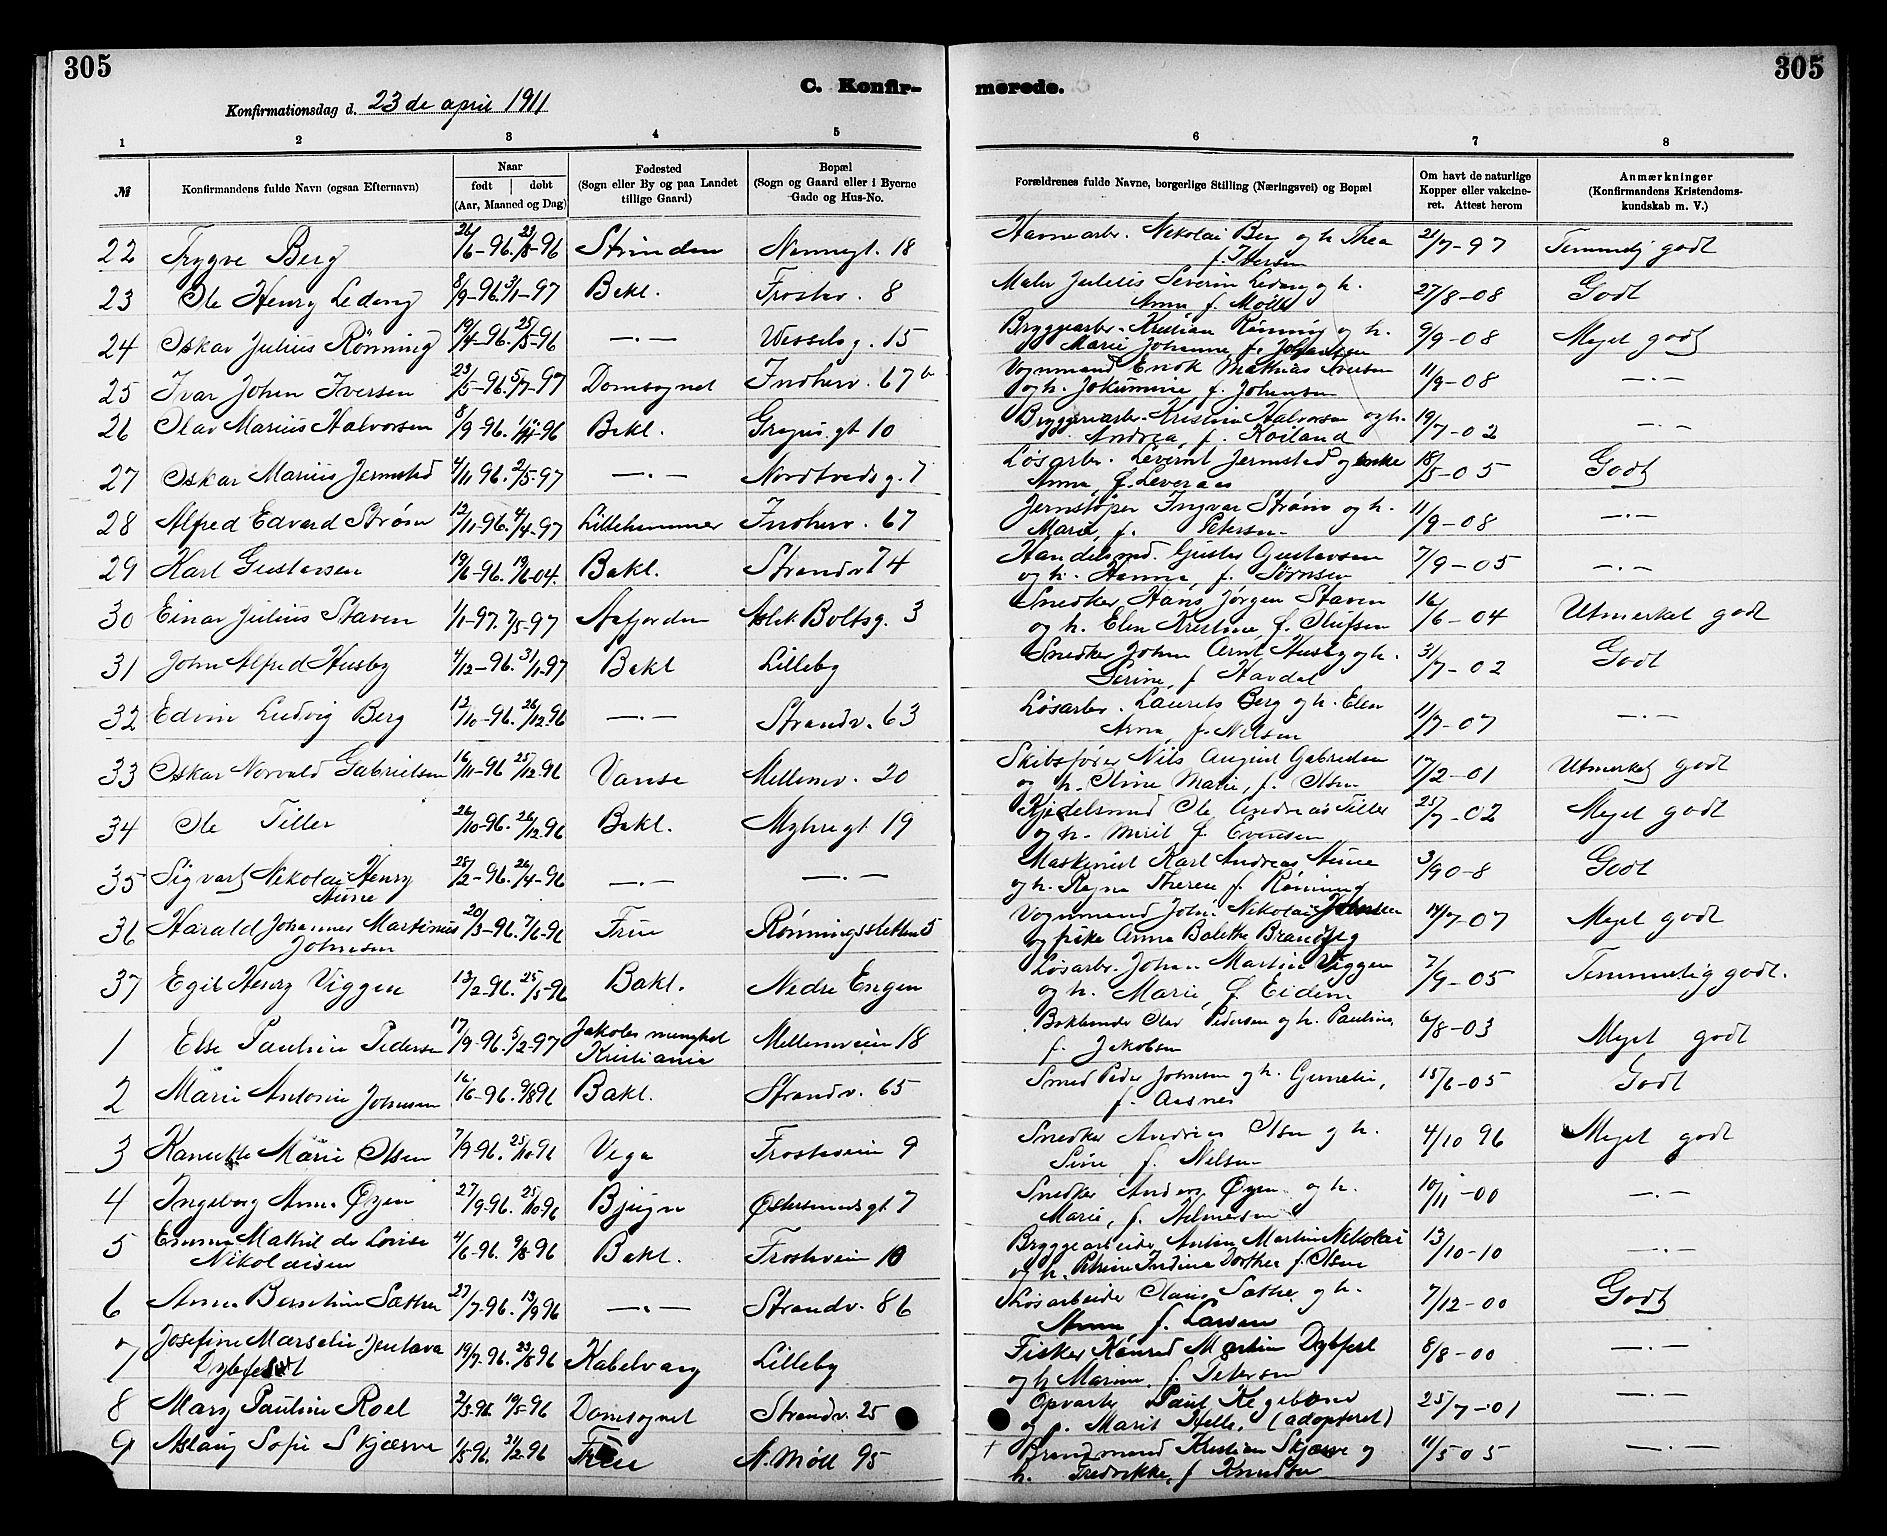 305
305
C. Konfir-
merede.
Konfirmationsdag d. 23de april 1911
1 2 3 4 5 6 7 8
№
Konfirmandens fulde Navn (ogsaa Efternavn)
Naar
født | døbt
(Aar, Maaned og Dag)
Fødested
(Sogn eller By og paa Landet
tillige Gaard)
Bopæl
(Sogn og Gaard eller i Byerne
Gade og Hus-No.
Forældrenes fulde Navne, borgerlige Stilling (Næringsvei) og Bopæl
Om havt de naturlige
Kopper eller vakcine-
ret. Attest herom
Anmærkninger
(Konfirmandens Kristendoms-
kundskab m. V.)
22 Trygve Berg 26/6-96. 23/8-96 Strinden Nonnegt. 18 Havnearb. Nikolai Berg og h. Thea 21/7-97 Temmelig godt
f. Iversen
23 Ole Henry Ledeng 8/9-96. 3/1-97 Bakl. Frostav. 8 Maler Julius Severin Ledeng og h. 27/8-08 Godt
Anna f. Moll
24 Oskar Julius Rønning 19/4-96. 25/5-96 —.— Wesselsg. 15 Bryggearb. Kristian Rønning og h. 9/9-08 Meget godt
Marie Johanne f. Johansen
25 Ivar Johan Iversen 23/5-96. 5/7-97 Domsognet Indherv. 67 b Vognmand Enok Mathias Iversen 11/9-08 —.—
og h. Jokumine, f. Johansen
26 Olav Marius Halvorsen 8/9-96. 1/11-96 Bakl. Gregus gt 10 Bryggeriarb. Kristian Halvorsen og h. 19/7-02 —.—
Andrea, f. Koiland
27 Oskar Marius Jermsted 4/11 96. 2/5-97 —.— Nordtvedsg. 7 Løsarb. Levernt Jermsted og enke 18/5-05 Godt
Anna, f. Leveraas
28 Alfred Edvard Strøm 12/11-96. 4/4-97 Lillehammer Indherv. 67 Jernstøper Ingvar Strøm og h. 11/9-08 —.—
Marie, f. Petersen
29 Karl Gustavsen 19/6-96. 19/6-04. Bakl. Strandv 74 Handelsmd. Gustav Gustavsen 7/9-05 —.—
og h. Hanna, f. Sørnsen
30 Einar Julius Staven 1/1-97. 7/5-97 Aafjorden Aslak Boltsg. 3 Snedker Hans Jørgen Staven 16/6-04 Utmerket godt
og h. Elen Kristine, f. Olufsen
31 John Alfred Husby 4/12-96. 31/1-97 Bakl Lilleby Snedker Johan Arnt Husby og h. 31/7-02 Godt
Serine, f Havdal
32 Edvin Ludvig Berg 12/10-96. 26/12-96 —.— Strandv. 63 Løsarbr. Laurits Berg og h. Elen 11/7-07 —.—
Anna, f. Nelsen
33 Oskar Norvald Gabrielsen 16/11-96 25/12-96 Vanse Mellemv. 20 Skibsfører Nils August Gabrielsen 17/2-01 Utmerket godt
og h. Oline Marie, f. Olsen
34 Ole Tiller 26/10-96. 26/12-96 Bakl. Myhregt 19 Kjedelsmed Ole Andreas Tiller 25/7-02 Meget godt
og h. Marit f. Evensen
35 Sigvart Nikolai Henry 28/2-96. 26/4-96 —.— —.— Maskinist Karl Andreas Aune 3/9 0-8 Godt
Aune og h. Ragna Therese f. Rønning
36 Harald Johannes Martinus 20/3-96. 7/6-96 Frue Rønningsletten 5 Vognmand Joh. Nikolai Johnsen 14/7-07 Meget godt
Johnsen og pike Anna Bolette Brandseg
37 Egil Henry Viggen 13/2-96. 25/5-96 Bakl. Nedre Engen Løsarbr. Johan Martin Viggen 7/9-05 Temmelig godt.
og h. Marie, f. Eidem
1 Else Pauline Pedersen 17/9-96. 5/2-97 Jakobs menighet Mellemveien 18 Bokbinder Olav Pedersen og h. Pauline, 6/8-03 Meget godt
Kristiania f. Jakobsen
2 Marie Antonie Johnsen 16/6-96. 9/8 96 Bakl. Strandv. 65 Smed Peder Johnsen og h. Gunelie, 15/6-05 Godt
f. Aasnes
3 Hanette Marie Olsen 7/9-96. 25/10 96 Vega Frostaveien 9 Snedker Andreas Olsen og h. 4/10 96 Meget godt
Sine, f. Nelsen
4 Ingeborg Anna Øyen 27/9-96. 25/10 96 Bjugn Østersundsgt 7 Snedker Anders Øyen og h. 10/11-00 —.—
Marie, f. Helmersen
5 Emma Mathilde Lovise 4/6-96. 9/8-96 Bakl. Frostaveien 10 Bryggearbeider Anton Martin Nikolai 13/10-10 —.—
Nikolaisen og h. Petrine Indiane Dorthea f. Olsen
6 Anna Berntine Sæther 27/7-96. 13/9 96 —.— Strandv. 86 Løsarbeider Claus Sæther og h. 7/12-00 Godt
Anna f. Larsen
7 Josefine Marselie Jentava 19/7-96. 23/8 96 Kabelvaag Lilleby Fisker Konrad Martin Dybfest 8/8-00 —.—
Dybfest og h Marine, f. Petersen
8 Mary Pauline Roel 2/3-96. 19/5-96 Domsognet Strandv. 25 Opvarter Paul 25/7-01 —.—
og p. Marit Helle. (adopteret)
9 Aslaug Sofie Skjærve 1/5-96. 21/2-96 Frue N. Møll 95 Brandmand Kristian Skjærve og 11/5 05 —.—
h. Fredrikke, f Knudsen